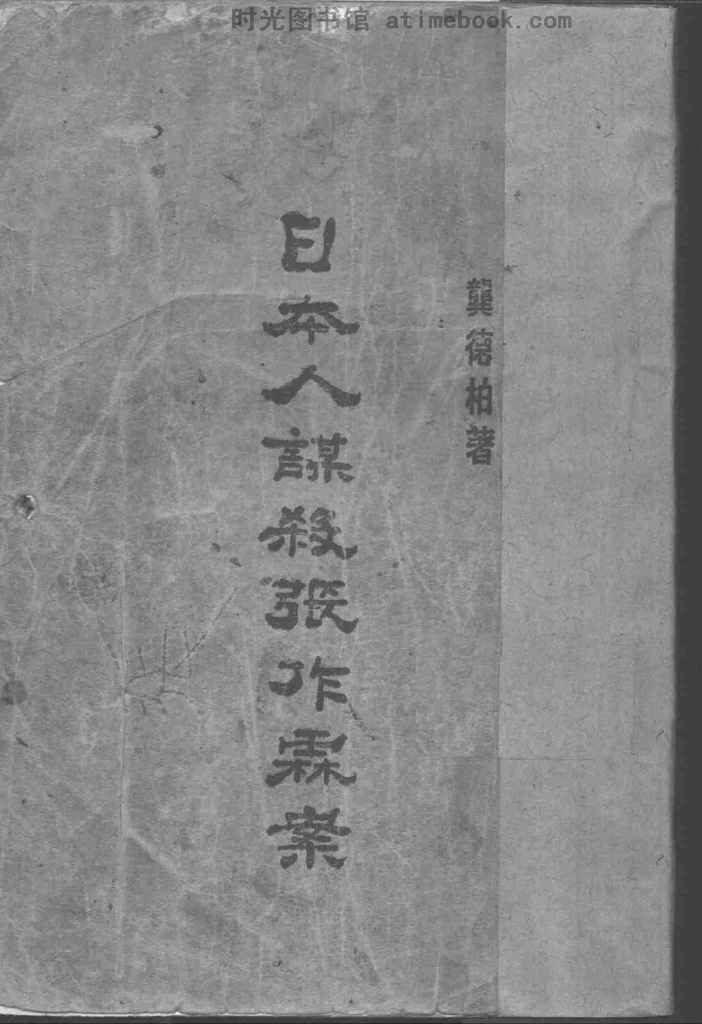 时光图书馆 atimebook.com
龔德柏著
日本人謀殺張作霖案